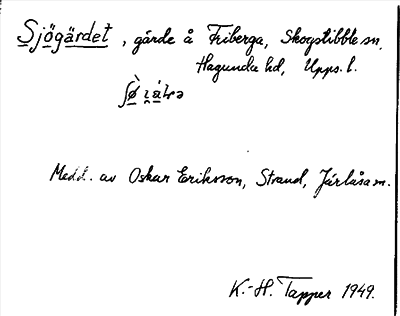 Sjögärdet, gärde å Friberga, Skogstibble sn,
Hagunda hd, Upps. l.
Medd. av Oskar Eriksson, Strand, Järlåsa sn.
K.-H. Tapper 1949.